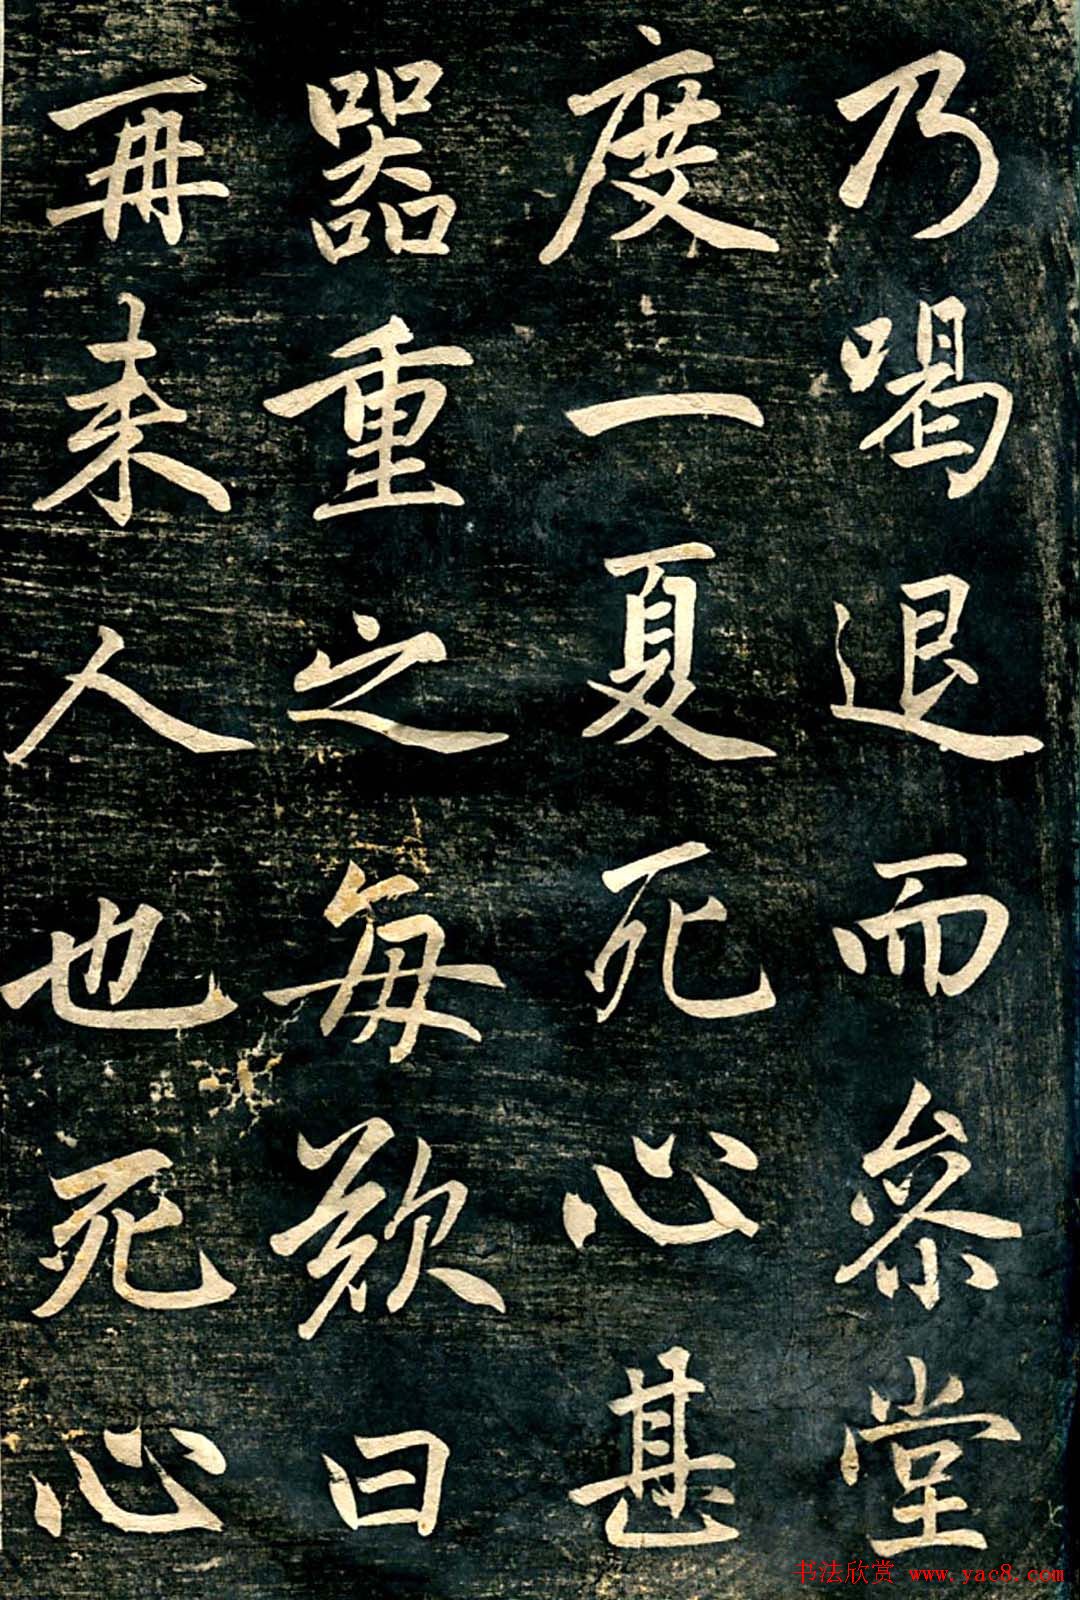 乃喝退而参堂
度一夏死心甚
器重之每欵曰
再来人也死心
书法欣赏 www.yac8.com